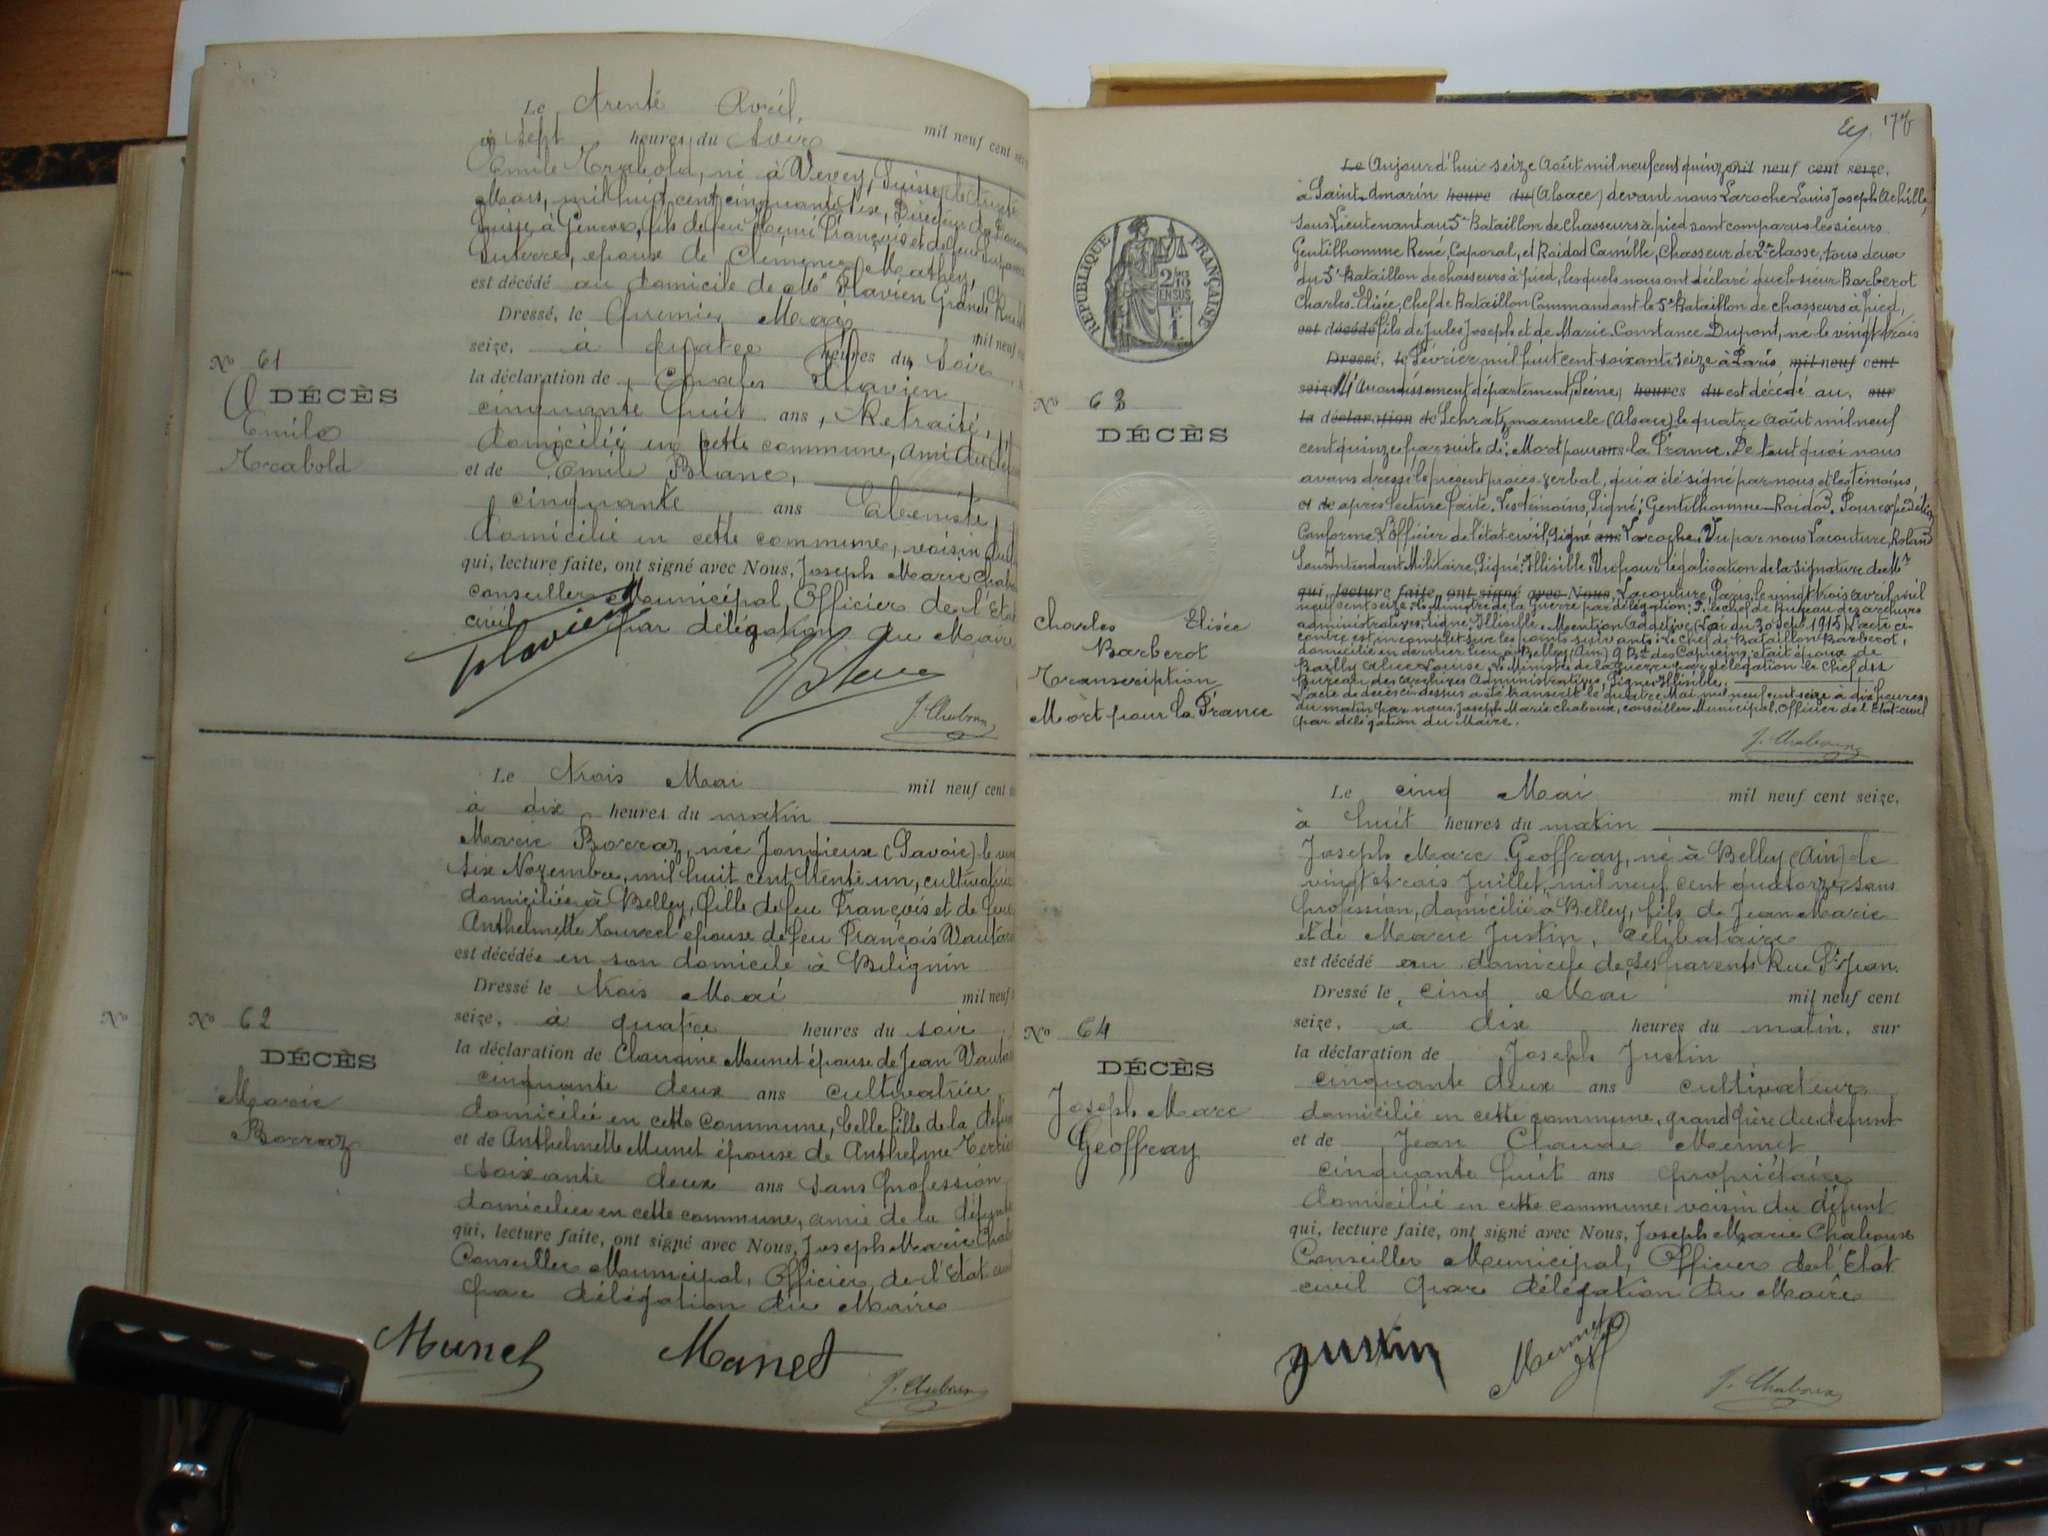 Le trente Avril, mil neuf cent
à sept heures du soir
Emile Trabold, né à Vevey, Suisse, le
Mars, mil huit cent cinquante six, Directeur de
Suisse, à Genève, fils de feu Henri François et de feu
Suterre, époux de Clémence Mathey,
est décédé au domicile de Mr Flavien Grande Rue
Dressé, le premier Mai mil neuf
seize, à quatre heures du soir
la déclaration de Charles Flavien
cinquante huit ans, Retraité,
domicilié en cette commune, ami du
et de Emile Blanc,
cinquante ans Ebéniste
domicilié en cette commune, voisin
qui, lecture faite, ont signé avec Nous, Joseph Marie
conseiller Municipal, Officier de l'Etat
civil par délégation du Maire
No 61
DÉCÈS
Emile
Trabold
Flavien
E Blanc
J. Chaboux
Le trois Mai mil neuf cent
à dix heures du matin
Marie Borraz, née Jongieux (Savoie) le
six Novembre, mil huit cent trente un, cultivatrice
domiciliée à Belley, fille de feu François et de feue
Anthelmette épouse de feu François
est décédée en son domicile à Bilignin
Dressé le trois Mai mil neuf
seize, à quatre heures du soir
la déclaration de Claudine Munet épouse de Jean
cinquante deux ans cultivatrice
domiciliée en cette commune, belle fille de la
et de Anthelmette Munet épouse de Anthelme
soixante deux ans sans profession
domiciliée en cette commune, amie de la défunte
qui, lecture faite, ont signé avec Nous, Joseph Marie
Conseiller Municipal, Officier de l'Etat
par délégation du Maire
No 62
DÉCÈS
Marie
Borraz
Munet
Manet
J. Chaboux
178
Le Aujourd'hui seize Août mil neuf cent quinze mil neuf cent seize,
à Saint-Amarin heure du (Alsace) devant nous Laroche Louis Joseph Achille,
Sous Lieutenant au 5e Bataillon de Chasseurs à pied sont comparus les sieurs
Gentilhomme René, Caporal, et Roidot Camille, Chasseur de 2me classe, tous deux
du 5e Bataillon de chasseurs à pied, lesquels nous ont déclaré que le sieur Barberot
Charles Elisée, Chef de Bataillon Commandant le 5e Bataillon de chasseurs à pied,
est décédé fils de Jules Joseph et de Marie Constance Dupont, né le vingt trois
Dressé, le Février mil huit cent soixante seize à Paris mil neuf cent
seize Arrondissement département Seine, heures du est décédé au, sur
la déclaration de Schratzmaennele (Alsace) le quatre Août mil neuf
cent quinze par suite de: Mort pour ans la France. De tout quoi nous
avons dressé le présent procès verbal, qui a été signé par nous et les témoins,
et de après lecture faite. Les témoins, Signé: Gentilhomme - Roidot. Pour expédition
Conforme L'Officier de l'état civil, Signé ans Laroche. Vu par nous Lacouture, Roland
Sous Intendant Militaire, Signé: Illisible. Vu pour légalisation de la signature de Mr
qui, lecture faite, ont signé avec Nous, Lacouture, Paris, le vingt trois avril mil
neuf cent seize. Le Ministre de la Guerre par délégation: P. le chef de Bureau des archives
administratives, signé: Illisible. Mention Additive (Loi du 30 Sept 1915) L'acte ci-
contre est incomplet sur les points suivants: Le chef de Bataillon Barberot,
domicilié en dernier lieu à Belley (Ain) 9 Bd des Capucins, était époux de
Bailly Alice Louise. Le Ministre de la guerre par délégation le Chef du
Bureau des Archives Administratives, Signé: Illisible.
L'acte de décès ci-dessus a été transcrit le quatre Mai mil neuf cent seize à dix heures
du matin par nous Joseph Marie Chaboux, conseiller Municipal, Officier de l'Etat-civil
par délégation du Maire.
J. Chaboux
RÉPUBLIQUE FRANÇAISE
No 63
DÉCÈS
Charles Elisée
Barberot
Transcription
Mort pour la France
Le cinq Mai mil neuf cent seize,
à huit heures du matin
Joseph Marc Geoffray, né à Belley (Ain) le
vingt trois Juillet, mil neuf cent quatorze, sans
profession, domicilié à Belley, fils de Jean Marie
et de Marie Justin, célibataire
est décédé au domicile de ses parents Rue St Jean
Dressé le cinq Mai mil neuf cent
seize, à dix heures du matin, sur
la déclaration de Joseph Justin
cinquante deux ans cultivateur
domicilié en cette commune, grand père du défunt
et de Jean Claude Mermet
cinquante huit ans propriétaire
domicilié en cette commune, voisin du défunt
qui, lecture faite, ont signé avec Nous, Joseph Marie Chaboux
Conseiller Municipal, Officier de l'Etat
civil par délégation du Maire
No 64
DÉCÈS
Joseph Marc
Geoffray
Justin
Mermet
J. Chaboux